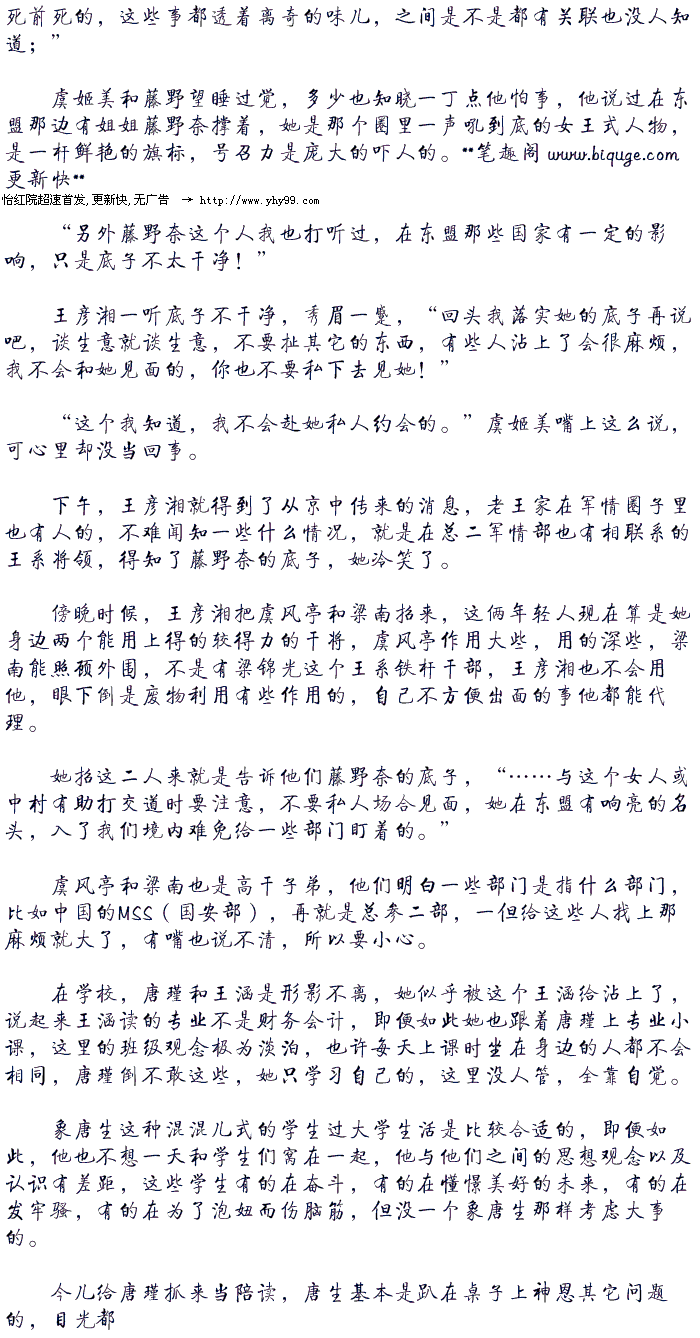 死前死的，这些事都透着离奇的味儿，之间是不是都有关联也没人知
道；”
虞姬美和藤野望睡过觉，多少也知晓一丁点他怕事，他说过在东
盟那边有姐姐藤野奈撑着，她是那个圈里一声吼到底的女王式人物，
是一杆鲜艳的旗标，号召力是庞大的吓人的。**笔趣阁 www.biquge.com
更新快**
怡红院超速首发,更新快,无广告 → http://www.yhy99.com
“另外藤野奈这个人我也打听过，在东盟那些国家有一定的影
响，只是底子不太干净！”
王彦湘一听底子不干净，秀眉一蹙，“回头我落实她的底子再说
吧，谈生意就谈生意，不要扯其它的东西，有些人沾上了会很麻烦，
我不会和她见面的，你也不要私下去见她！”
“这个我知道，我不会赴她私人约会的。”虞姬美嘴上这么说，
可心里却没当回事。
下午，王彦湘就得到了从京中传来的消息，老王家在军情圈子里
也有人的，不难闻知一些什么情况，就是在总二军情部也有相联系的
王系将领，得知了藤野奈的底子，她冷笑了。
傍晚时候，王彦湘把虞风亭和梁南招来，这俩年轻人现在算是她
身边两个能用上得的较得力的干将，虞风亭作用大些，用的深些，梁
南能照顾外围，不是有梁锦光这个王系铁杆干部，王彦湘也不会用
他，眼下倒是废物利用有些作用的，自己不方便出面的事他都能代
理。
她招这二人来就是告诉他们藤野奈的底子，“……与这个女人或
中村有助打交道时要注意，不要私人场合见面，她在东盟有响亮的名
头，入了我们境内难免给一些部门盯着的。”
虞风亭和梁南也是高干子弟，他们明白一些部门是指什么部门，
比如中国的MSS（国安部），再就是总参二部，一但给这些人找上那
麻烦就大了，有嘴也说不清，所以要小心。
在学校，唐瑾和王涵是形影不离，她似乎被这个王涵给沾上了，
说起来王涵读的专业不是财务会计，即便如此她也跟着唐瑾上专业小
课，这里的班级观念极为淡泊，也许每天上课时坐在身边的人都不会
相同，唐瑾倒不敢这些，她只学习自己的，这里没人管，全靠自觉。
象唐生这种混混儿式的学生过大学生活是比较合适的，即便如
此，他也不想一天和学生们窝在一起，他与他们之间的思想观念以及
认识有差距，这些学生有的在奋斗，有的在憧憬美好的未来，有的在
发牢骚，有的在为了泡妞而伤脑筋，但没一个象唐生那样考虑大事
的。
今儿给唐瑾抓来当陪读，唐生基本是趴在桌子上神思其它问题
的，目光都